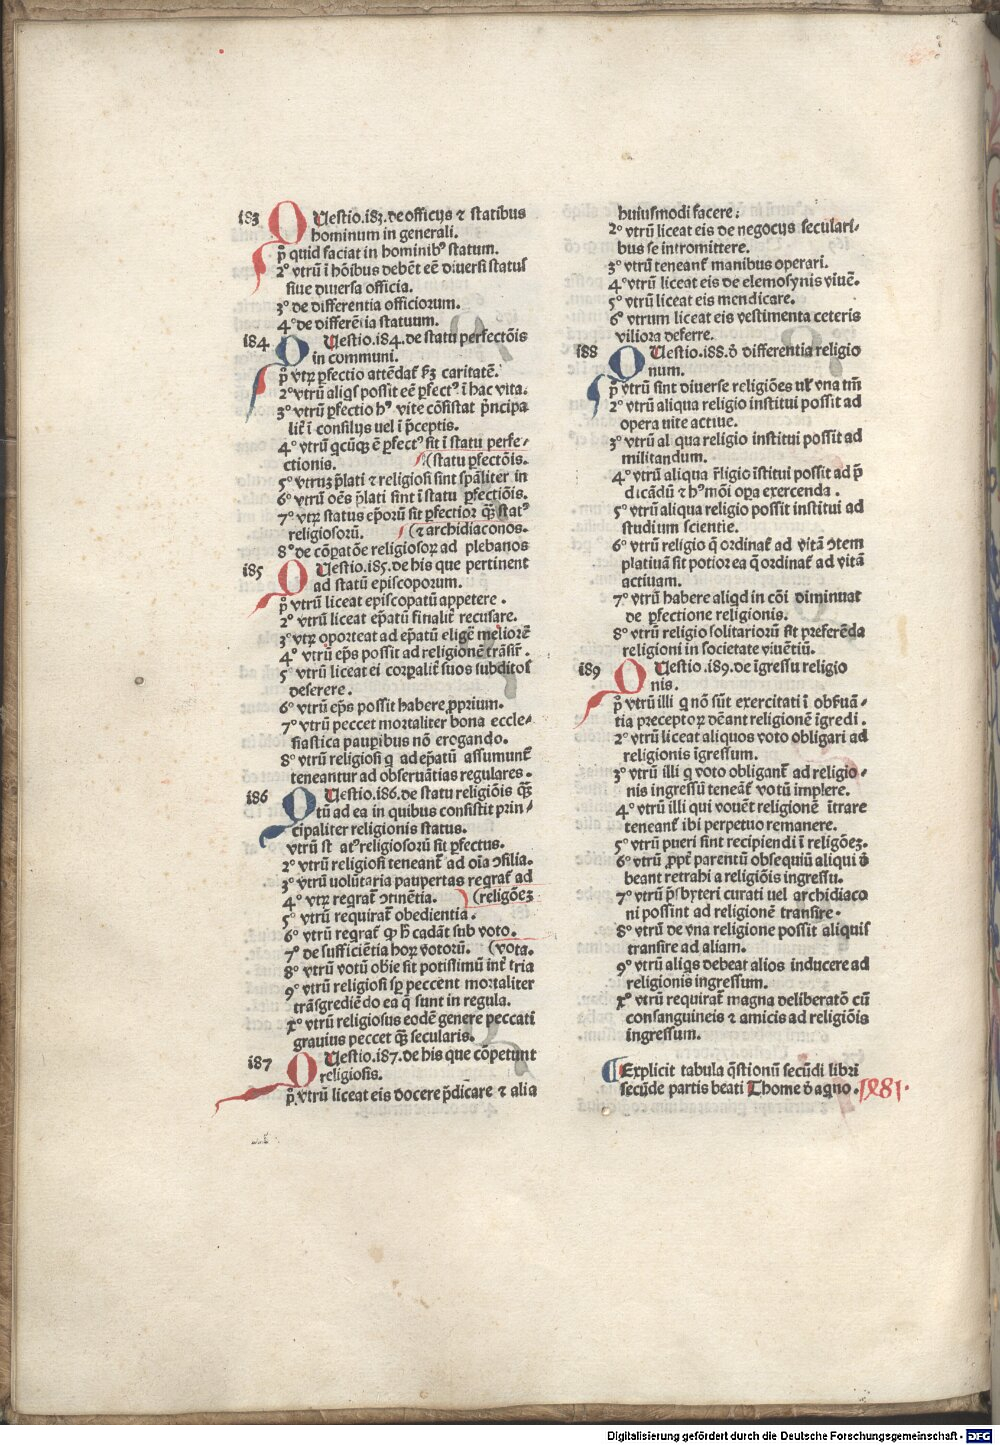 183 QUestio.183.de officijs ⁊ statibus
hominum in generali.
p̄ quid faciat in hominibꝰ statum.
2º vtrū ī hōībus debēt eē diuersi status
siue diuersa officia.
3º de differentia officiorum.
4º de differētia statuum.
184 QUestio.184.de statu perfectōis
in communi.
p̄ vtꝝ ꝑfectio attēdat᷑ ẜꝫ caritatē.
2º vtrū aliqͥs possit eē ꝑfectꝰ ī hac vita.
3º vtrū ꝑfectio hꝰ vite cōsistat pͥncipa
lit᷑ ī consilijs uel ī p̄ceptis.
4º vtrū qͥcūqꝫ ē ꝑfectꝰ sit ī statu perfe-
ctionis. (statu ꝑfectōis.
5º vtruꝫ p̄lati ⁊ religiosi sint spāliter in
6º vtrū oēs p̄lati sint ī statu ꝑfectiōis.
7º vtꝝ status ep̄orū sit ꝑfectior qͣꝫ statꝰ
religiosorū. (⁊ archidiaconos.
8º de cōꝑatōe religiosoꝝ ad plebanos
185 QUestio.185.de his que pertinent
ad statū episcoporum.
p̄ vtrū liceat episcopatū appetere.
2º vtrū liceat ep̄atū finalit᷑ recusare.
3º vtꝝ oporteat ad ep̄atū eligē meliorē
4º vtrū ep̄s possit ad religionē trāsir᷑.
5º vtrū liceat ei corꝑalit᷑ suos subditos
deserere.
6º vtrū ep̄s possit habere ꝓprium.
7º vtrū peccet mortaliter bona eccle-
siastica pauꝑibus nō erogando.
8º vtrū religiosi qͥ ad ep̄atū assumunt᷑
teneantur ad obseruātias regulares.
186 QUestio.186.de statu religiōis qͣꝫ
tū ad ea in quibus consistit prin-
cipaliter religionis status.
vtrū st̄ atꝰ religiosorū sit ꝑfectus.
2º vtrū religiosi teneant᷑ ad oīa ↄsilia.
3º vtrū uolūtaria paupertas reqͥrat᷑ ad
4º vtꝝ reqͥrat᷑ ↄtinētia. (religōeꝫ
5º vtrū requirat᷑ obedientia.
6º vtrū reqͥrat᷑ ꝙ h̄ cadāt sub voto.
7º de sufficiētia hoꝝ votorū. (vota.
8º vtrū votū obīe sit potissimū int᷑ tria
9º vtrū religiosi sꝑ peccent mortaliter
trāsgrediēdo ea q̄ sunt in regula.
xº vtrū religiosus eodē genere peccati
grauius peccet qͣꝫ secularis.
187 QUestio.187.de his que cōpetunt
religiosis.
p̄ vtrū liceat eis docere p̄dicare ⁊ alia
huiusmodi facere:
2º vtrū liceat eis de negocijs seculari-
bus se intromittere.
3º vtrū teneant᷑ manibus operari.
4º vtrū liceat eis de elemosynis viuē.
5º vtrū liceat eis mendicare.
6º vtrum liceat eis vestimenta ceteris
viliora deferre.
188 QUestio.188.ð differentia religio
num.
p̄ vtrū sint diuerse religiōes uł vna tm̄
2º vtrū aliqua religio institui possit ad
opera uite actiue.
3º vtrū al qua religio institui possit ad
militandum.
4º vtrū aliqua r̄ligio īstitui possit ad p̄
dicādū ⁊ hꝰmōi oꝑa exercenda.
5º vtrū aliqua religio possit institui ad
studium scientie.
6º vtrū religio q̄ ordinat᷑ ad vitā ↄtem
platiuā sit potior ea q̄ ordinat᷑ ad vitā
actiuam.
7º vtrū habere aliqͥd in cōi diminuat
de ꝑfectione religionis.
8º vtrū religio solitariorū sit preferēda
religioni in societate viuētiū.
189 QUestio.189.de īgressu religio
nis.
p̄ vtrū illi q̇ nō sūt exercitati ī obẜuā-
tia preceptoꝝ dēant religionē īgredi.
2º vtrū liceat aliquos voto obligari ad
religionis īgressum.
3º vtrū illi q̇ voto obligant᷑ ad religio-
nis ingressū teneāt᷑ votū implere.
4º vtrū illi qui vouēt religionē ītrare
teneant᷑ ibi perpetuo remanere.
5º vtrū pueri sint recipiendi ī religōeꝫ.
6º vtrū ꝓpt᷑ parentū obsequiū aliqui ð
beant retrahi a religiōis ingressu.
7º vtrū p̄sbyteri curati uel archidiaco
ni possint ad religionē transire.
8º vtrū de vna religione possit aliquis
transire ad aliam.
9º vtrū aliqͥs debeat alios inducere ad
religionis ingressum.
xº vtrū requirat᷑ magna deliberatō cū
consanguineis ⁊ amicis ad religiōis
ingressum.
¶Explicit tabula q̄stionū secūdi libri
secūde partis beati Thome ð aqͥno. 1881.
Digitalisierung gefördert durch die Deutsche Forschungsgemeinschaft - DFG